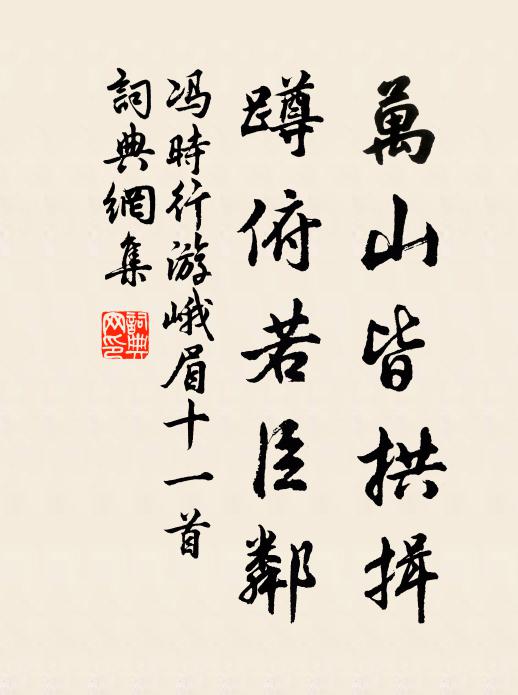 萬山皆拱揖
蹲俯若臣鄰
冯時行游峨眉十一首
詞典網集
詞典網印